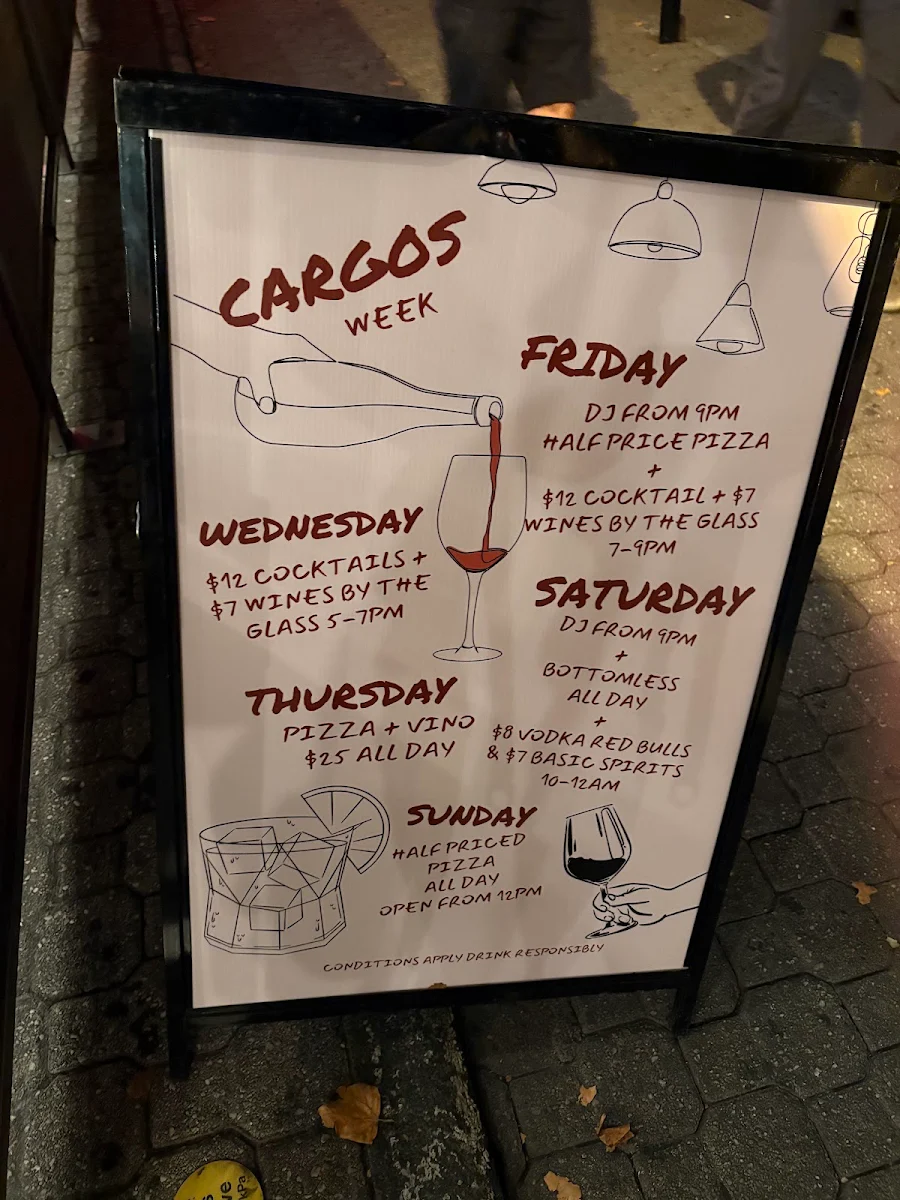 CARGOS
WEEK
WEDNESDAY
$12 COCKTAILS +
$7 WINES BY THE
GLASS 5-7PM
THURSDAY
PIZZA + VINO
$25 ALL DAY
FRIDAY
DJ FROM 9PM
HALF PRICE PIZZA
+
$12 COCKTAIL + $7
WINES BY THE GLASS
7-9PM
SATURDAY
DJ FROM 9PM
+
BOTTOMLESS
ALL DAY
+
$8 VODKA RED BULLS
& $7 BASIC SPIRITS
10-12AM
SUNDAY
HALF PRICED
PIZZA
ALL DAY
OPEN FROM 12PM
CONDITIONS APPLY DRINK RESPONSIBLY